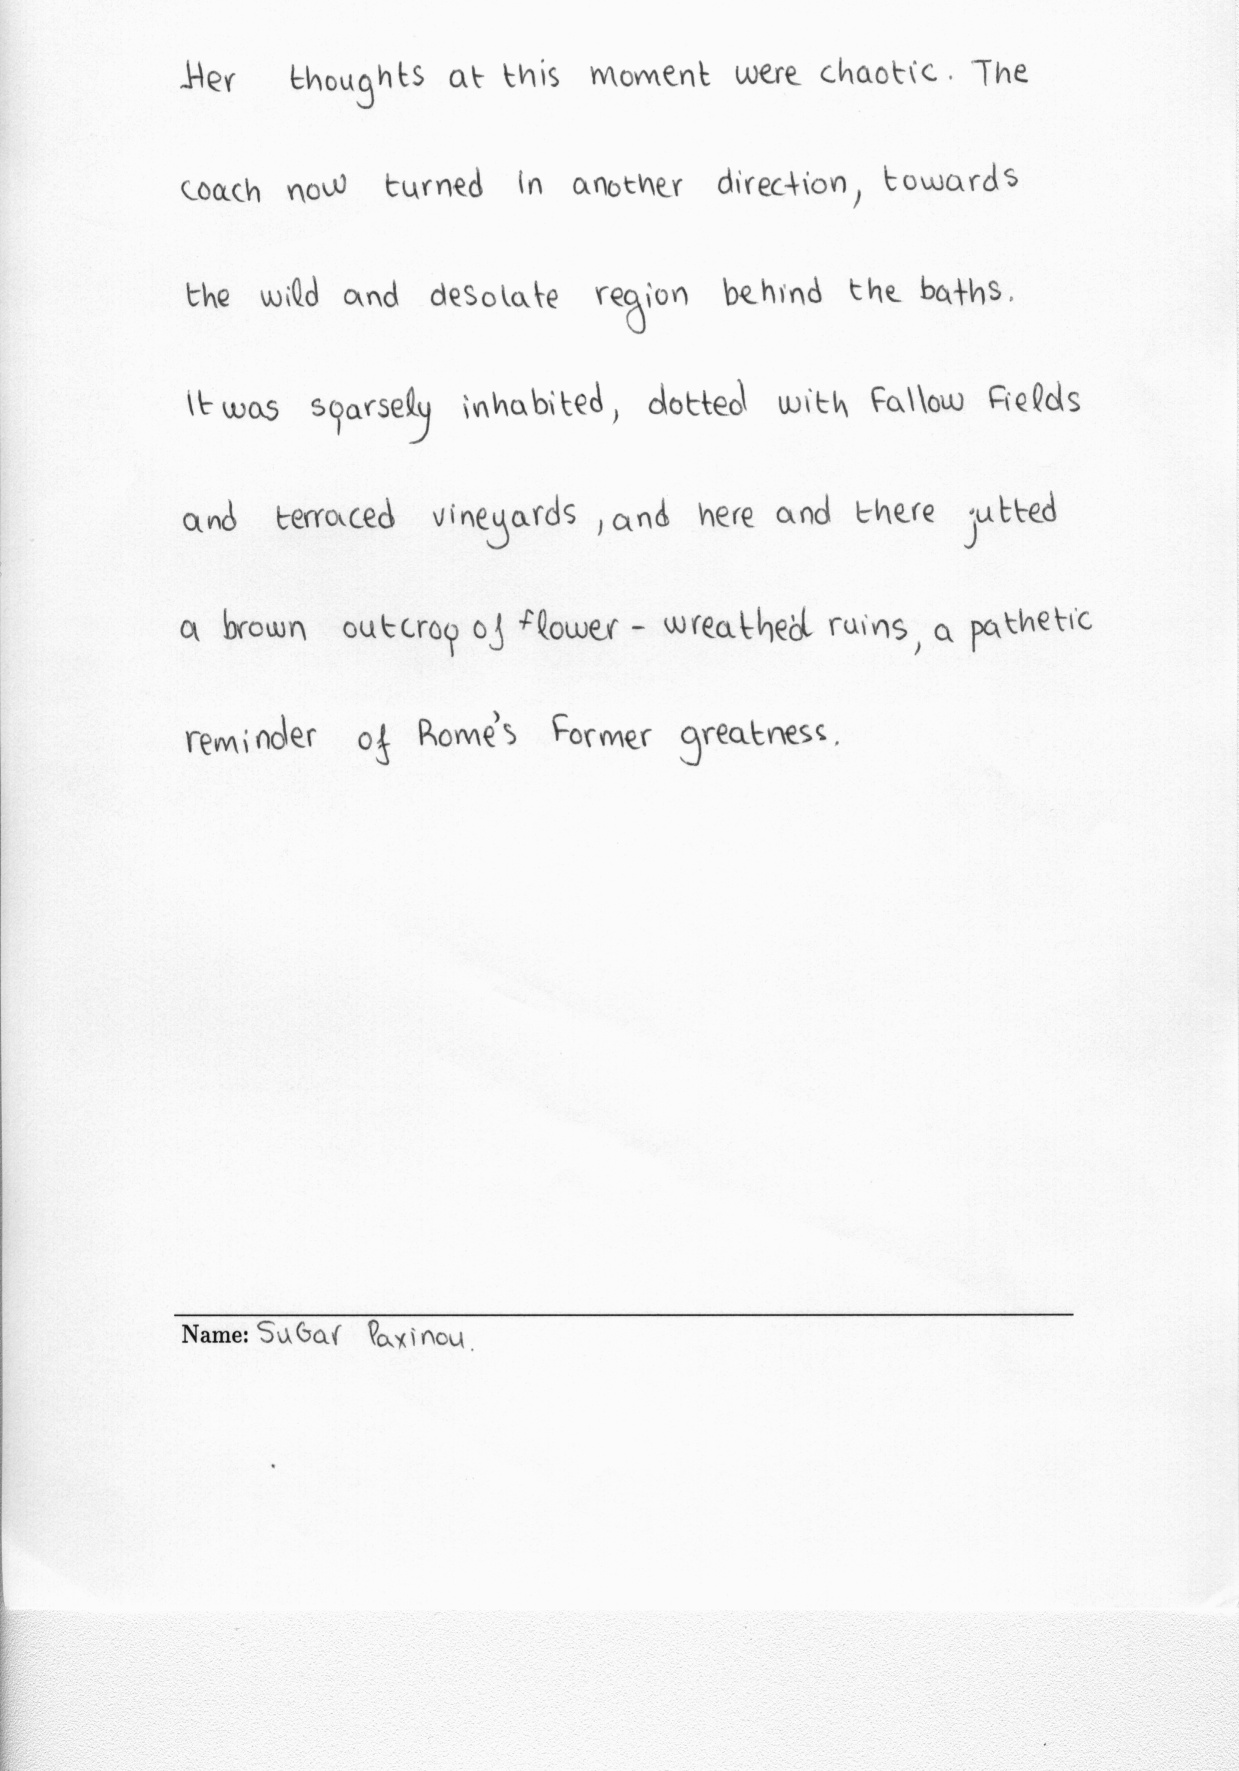 Her thoughts at this moment were chaotic. The
coach now turned in another direction, towards
the wild and desolate region behind the baths.
It was sparsely inhabited, dotted with fallow fields
and terraced vineyards, and here and there jutted
a brown outcrop of flower-wreathed ruins, a pathetic
reminder of Rome's former greatness.
Name: SuGar Paxinou.